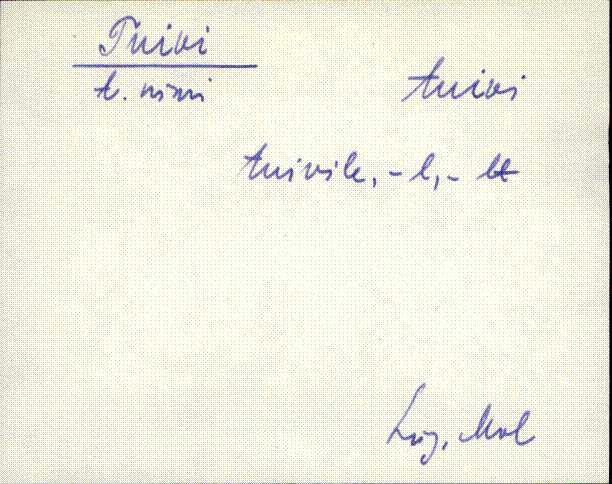 Tuivi
t. nimi
tuivi
tuivile, -l, -lt
Lüg, Mol